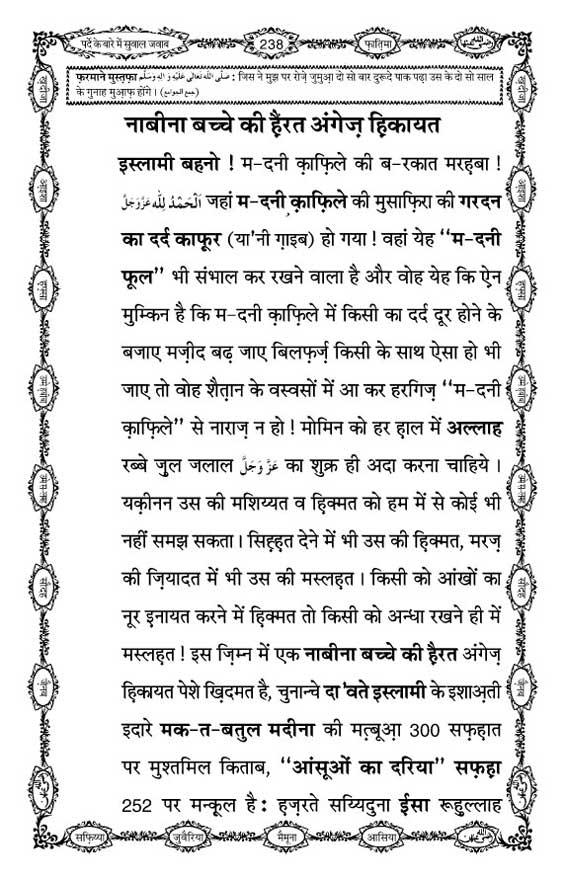 पर्दे के बारे में सुवाल जवाब
238
फ़ातिमा
फ़रमाने मुस्तफ़ा صَلَّى اللّٰهُ تَعَالٰى عَلَيْهِ وَاٰلِهٖ وَسَلَّم : जिस ने मुझ पर रोज़े जुमुआ़ दो सो बार दुरूदे पाक पढ़ा उस के दो सो साल
के गुनाह मुआ़फ़ होंगे । (جمع الجوامع)
नाबीना बच्चे की हैरत अंगेज़ हि़कायत
इस्लामी बहनो ! म-दनी क़ाफ़िले की ब-रकात मरह़बा !
اَلْحَمْدُ لِلّٰه عَزَّوَجَلَّ जहां म-दनी क़ाफ़िले की मुसाफ़िरा की गरदन
का दर्द काफूर (या'नी ग़ाइब) हो गया ! वहां येह “म-दनी
फूल” भी संभाल कर रखने वाला है और वोह येह कि ऐ़न
मुम्किन है कि म-दनी क़ाफ़िले में किसी का दर्द दूर होने के
बजाए मज़ीद बढ़ जाए बिलफ़र्ज़ किसी के साथ ऐसा हो भी
जाए तो वोह शैत़ान के वस्वसों में आ कर हरगिज़ “म-दनी
क़ाफ़िले” से नाराज़ न हो ! मोमिन को हर ह़ाल में अल्लाह
रब्बे जुल जलाल عَزَّوَجَلَّ का शुक्र ही अदा करना चाहिये ।
यक़ीनन उस की मशिय्यत व हि़क्मत को हम में से कोई भी
नहीं समझ सकता । सिह़्ह़त देने में भी उस की हि़क्मत, मरज़
की ज़ियादत में भी उस की मस्लह़त । किसी को आंखों का
नूर इनायत करने में हि़क्मत तो किसी को अन्धा रखने ही में
मस्लह़त ! इस ज़िम्न में एक नाबीना बच्चे की हैरत अंगेज़
हि़कायत पेशे ख़िदमत है, चुनान्चे दा'वते इस्लामी के इशाअ़ती
इदारे मक-त-बतुल मदीना की मत़्बूआ़ 300 सफ़ह़ात
पर मुश्तमिल किताब, “आंसूओं का दरिया” सफ़ह़ा
252 पर मन्कूल है : ह़ज़रते सय्यिदुना ईसा रूहुल्लाह
सफ़िय्या
जुवैरिया
मैमूना
आसिया